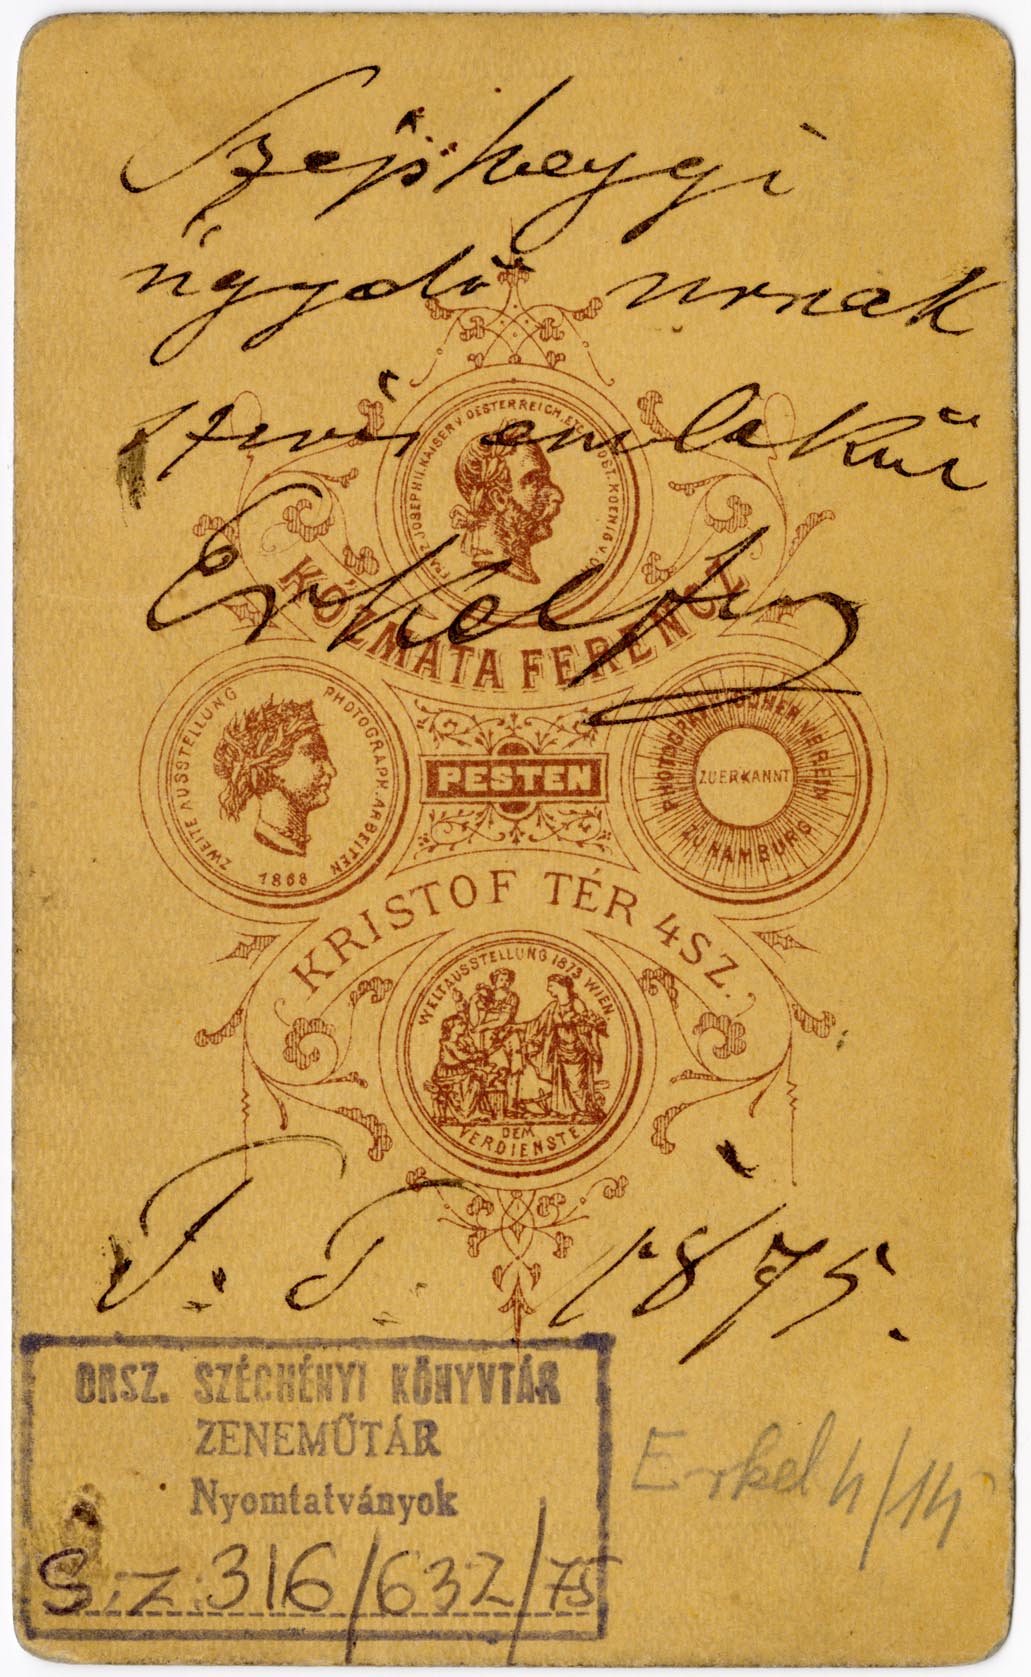 Széphegyi
ügydö urnak
szives emlekül
Erkel Ferencz
FRANZ JOSEPH I. KAISER V. OESTERREICH, ETC. APOST. KOENIG V. UNG.
KOZMATA FERENCZ
ZWEITE AUSSTELLUNG PHOTOGRAPH. ARBEITEN
1868
PESTEN
PHOTOGRAPHISCHEN VEREIN
ZUERKANNT
ZU HAMBURG
KRISTOF TÉR 4 SZ.
WELTAUSSTELLUNG 1873 WIEN
DEM
VERDIENSTE
1875.
ORSZ. SZÉCHÉNYI KÖNYVTÁR
ZENEMŰTÁR
Nyomtatványok
Erkel 4/14
SZ. 316/632/75